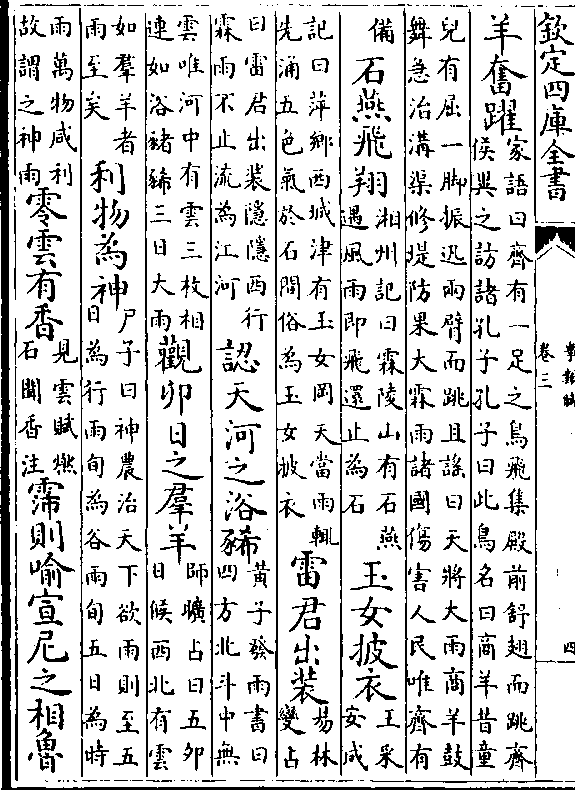 欽定四庫全書
事類賦
卷三
四
羊奮躍
家語曰齊有一足之鳥飛集殿前舒翅而跳齊
侯異之訪諸孔子孔子曰此鳥名曰商羊昔童
兒有屈一脚振迅兩臂而跳且謠曰天將大雨商羊鼓
舞急治溝渠修堤防果大霖雨諸國傷害人民唯齊有
備
石燕飛翔
湘州記曰霖陵山有石燕
遇風雨即飛還止為石
玉女披衣
王采
安成
記曰萍鄉西城津有玉女岡天當雨輒
先涌五色氣於石間俗為玉女披衣
雷君出装
易林
變占
曰雷君出装隱隱西行
霖雨不止流為江河
認天河之浴豨
黄子發雨書曰
四方北斗中無
雲唯河中有雲三枚相
連如浴豬豨三日大雨
觀卯日之羣羊
師曠占曰五卯
日候西北有雲
如羣羊者
雨至矣
利物為神
尸子曰神農治天下欲雨則至五
日為行雨旬為谷雨旬五日為時
雨萬物咸利
故謂之神雨
零雲有香
見雲賦撚
石聞香注
霈則喻宣尼之相魯